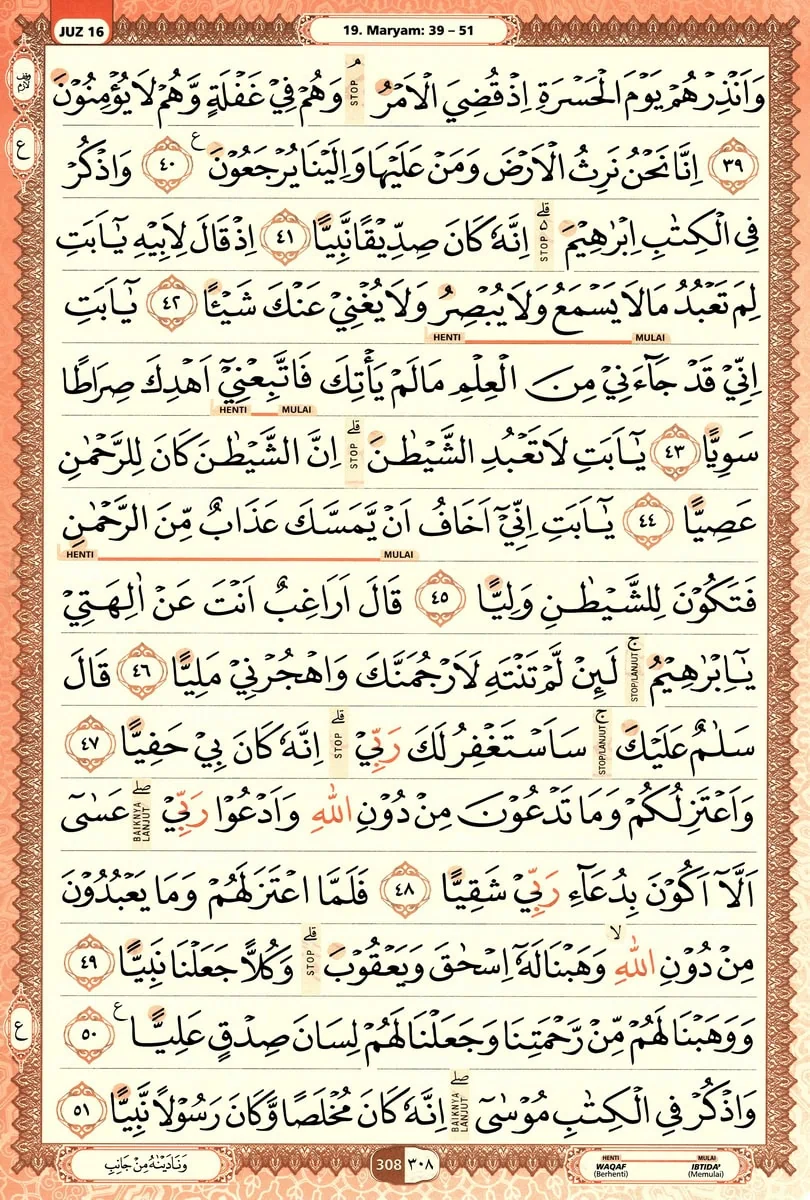 JUZ 16
19. Maryam: 39 – 51
وَاَنْذِرْهُمْ يَوْمَ الْحَسْرَةِ اِذْ قُضِيَ الْاَمْرُۘ STOP وَهُمْ فِيْ غَفْلَةٍ وَّهُمْ لَا يُؤْمِنُوْنَ
٣٩ اِنَّا نَحْنُ نَرِثُ الْاَرْضَ وَمَنْ عَلَيْهَا وَاِلَيْنَا يُرْجَعُوْنَ ࣖ ٤٠ وَاذْكُرْ
فِى الْكِتٰبِ اِبْرٰهِيْمَ ۗ STOP اِنَّهٗ كَانَ صِدِّيْقًا نَّبِيًّا ٤١ اِذْ قَالَ لِاَبِيْهِ يٰٓاَبَتِ
لِمَ تَعْبُدُ مَا لَا يَسْمَعُ وَلَا يُبْصِرُ وَلَا يُغْنِيْ عَنْكَ شَيْـًٔا ٤٢ يٰٓاَبَتِ
HENTI MULAI
اِنِّيْ قَدْ جَاۤءَنِيْ مِنَ الْعِلْمِ مَا لَمْ يَأْتِكَ فَاتَّبِعْنِيْٓ اَهْدِكَ صِرَاطًا
HENTI MULAI
سَوِيًّا ٤٣ يٰٓاَبَتِ لَا تَعْبُدِ الشَّيْطٰنَ ۗ STOP اِنَّ الشَّيْطٰنَ كَانَ لِلرَّحْمٰنِ
عَصِيًّا ٤٤ يٰٓاَبَتِ اِنِّيْٓ اَخَافُ اَنْ يَّمَسَّكَ عَذَابٌ مِّنَ الرَّحْمٰنِ
HENTI MULAI
فَتَكُوْنَ لِلشَّيْطٰنِ وَلِيًّا ٤٥ قَالَ اَرَاغِبٌ اَنْتَ عَنْ اٰلِهَتِيْ
يٰٓاِبْرٰهِيْمُ ۚ STOP/LANJUT لَىِٕنْ لَّمْ تَنْتَهِ لَاَرْجُمَنَّكَ وَاهْجُرْنِيْ مَلِيًّا ٤٦ قَالَ
سَلٰمٌ عَلَيْكَ ۚ STOP/LANJUT سَاَسْتَغْفِرُ لَكَ رَبِّيْ ۗ STOP اِنَّهٗ كَانَ بِيْ حَفِيًّا ٤٧
وَاَعْتَزِلُكُمْ وَمَا تَدْعُوْنَ مِنْ دُوْنِ اللّٰهِ وَاَدْعُوْا رَبِّيْ ۖ BAIKNYA LANJUT عَسٰٓى
اَلَّآ اَكُوْنَ بِدُعَاۤءِ رَبِّيْ شَقِيًّا ٤٨ فَلَمَّا اعْتَزَلَهُمْ وَمَا يَعْبُدُوْنَ
مِنْ دُوْنِ اللّٰهِ ۙ وَهَبْنَا لَهٗٓ اِسْحٰقَ وَيَعْقُوْبَ ۗ STOP وَكُلًّا جَعَلْنَا نَبِيًّا ٤٩
وَوَهَبْنَا لَهُمْ مِّنْ رَّحْمَتِنَا وَجَعَلْنَا لَهُمْ لِسَانَ صِدْقٍ عَلِيًّا ࣖ ٥٠
وَاذْكُرْ فِى الْكِتٰبِ مُوْسٰٓى ۖ BAIKNYA LANJUT اِنَّهٗ كَانَ مُخْلَصًا وَّكَانَ رَسُوْلًا نَّبِيًّا ٥١
وقف لازم
ع
ع
وَنَادَيْنٰهُ مِنْ جَانِبِ
308 ٣٠٨
HENTI MULAI
WAQAF IBTIDA'
(Berhenti) (Memulai)